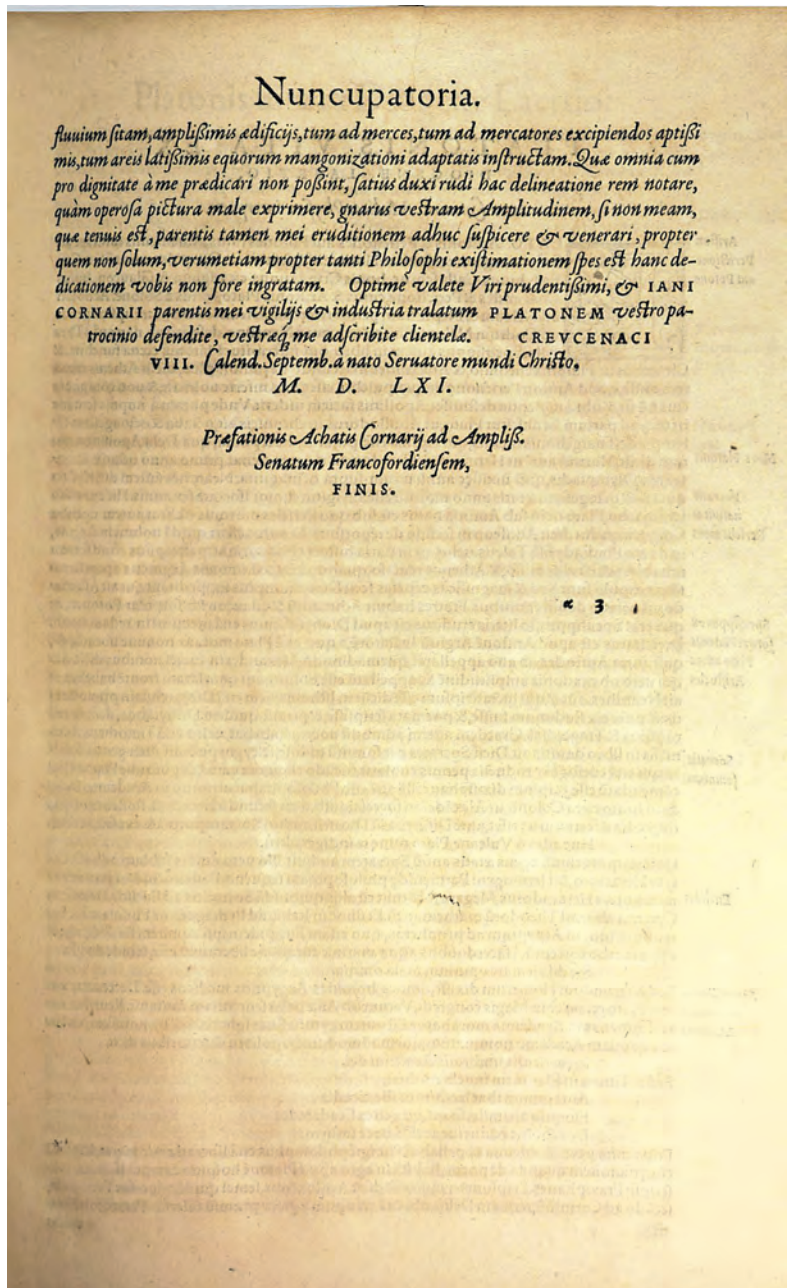 Nuncupatoria.
fluuium sitam, amplißimis ædificijs, tum ad merces, tum ad mercatores excipiendos aptißi
mis, tum areis latißimis equorum mangonizationi adaptatis instructam. Quæ omnia cum
pro dignitate à me prædicari non poßint, satius duxi rudi hac delineatione rem notare,
quàm operosa pictura male exprimere, gnarus vestram Amplitudinem, si non meam,
quæ tenuis est, parentis tamen mei eruditionem adhuc suspicere & venerari, propter
quem non solum, verumetiam propter tanti Philosophi existimationem spes est hanc de-
dicationem vobis non fore ingratam. Optimè valete Viri prudentißimi, & IANI
CORNARII parentis mei vigilijs & industria tralatum PLATONEM vestro pa-
trocinio defendite, vestræq; me adscribite clientelæ. CREVCENACI
VIII. Calend. Septemb. à nato Seruatore mundi Christo,
M. D. LXI.
Præfationis Achatis Cornarij ad Ampliß.
Senatum Francofordiensem,
FINIS.
α 3